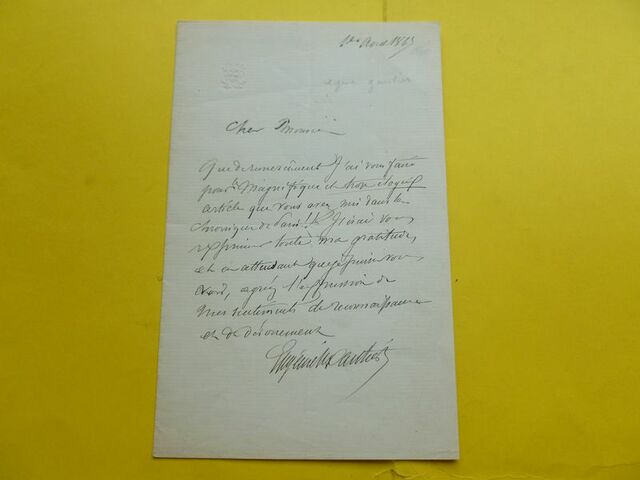 1er Avril 1865
Eugène Gautier
Cher Monsieur
Que de remerciments J'ai à vous faire
pour le Magnifique et trop élogieux
article que vous avez mis dans la
chronique de Paris!! J'irai vous
exprimer toute ma gratitude,
et en attendant que je puisse vous
voir, agréez l'expression de
mes sentiments de reconnaissance
et de dévouement
Eugène Gautier